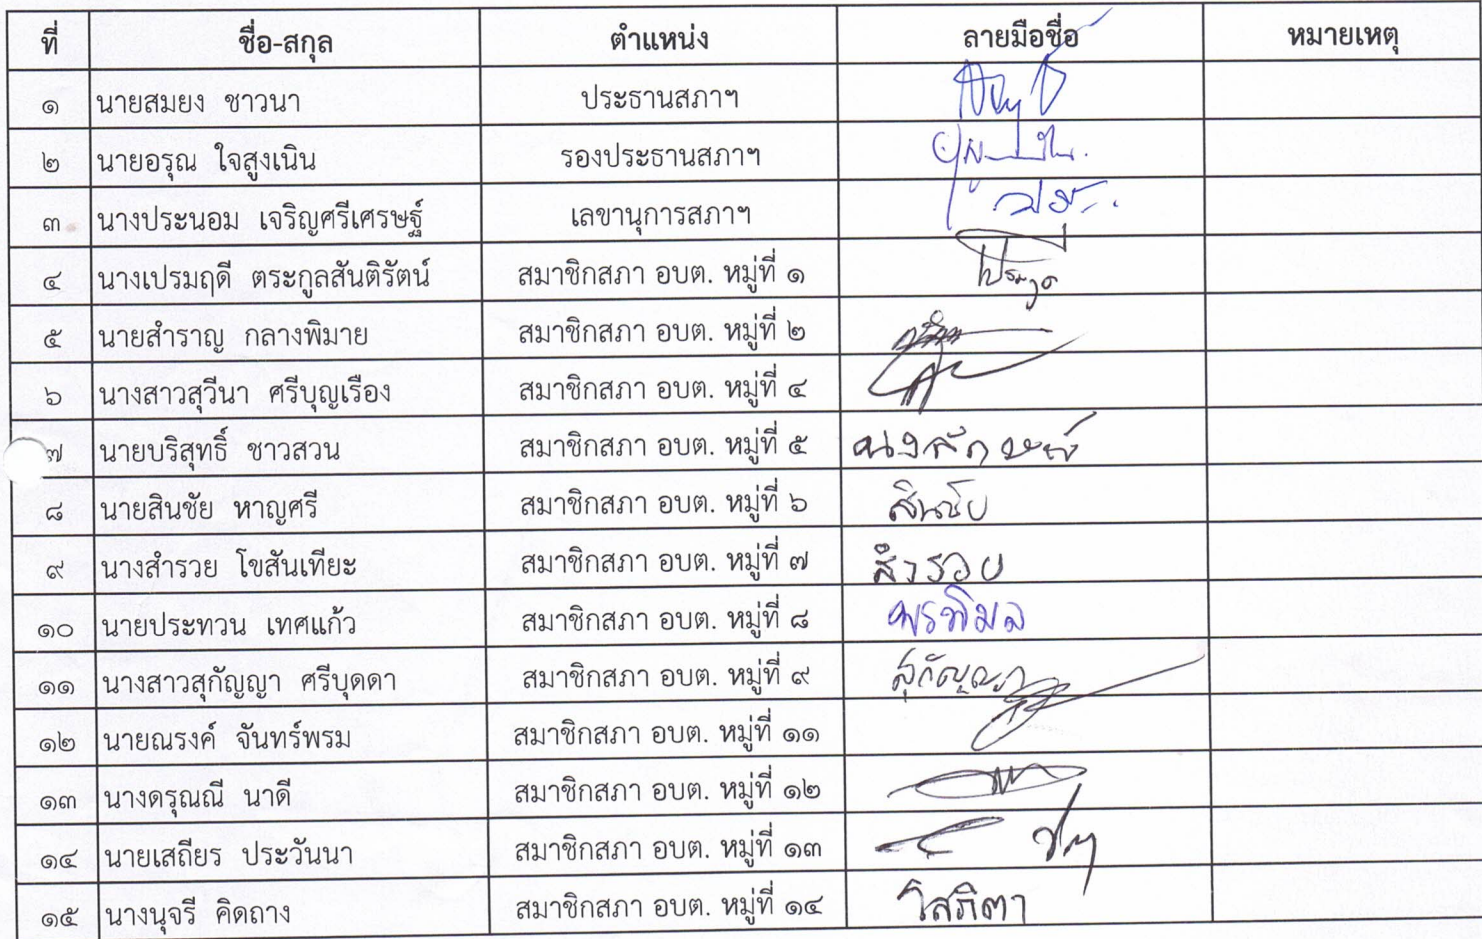 ที่ ชื่อ-สกุล ตำแหน่ง ลายมือชื่อ หมายเหตุ
๑ นายสมยง ชาวนา ประธานสภาฯ
๒ นายอรุณ ใจสูงเนิน รองประธานสภาฯ
๓ นางประนอม เจริญศรีเศรษฐ์ เลขานุการสภาฯ
๔ นางเปรมฤดี ตระกูลสันติรัตน์ สมาชิกสภา อบต. หมู่ที่ ๑
๕ นายสำราญ กลางพิมาย สมาชิกสภา อบต. หมู่ที่ ๒
๖ นางสาวสุวีนา ศรีบุญเรือง สมาชิกสภา อบต. หมู่ที่ ๔
๗ นายบริสุทธิ์ ชาวสวน สมาชิกสภา อบต. หมู่ที่ ๕
๘ นายสินชัย หาญศรี สมาชิกสภา อบต. หมู่ที่ ๖ สินชัย
๙ นางสำรวย โขสันเทียะ สมาชิกสภา อบต. หมู่ที่ ๗ สำรวย
๑๐ นายประทวน เทศแก้ว สมาชิกสภา อบต. หมู่ที่ ๘ พรพิมล
๑๑ นางสาวสุกัญญา ศรีบุดดา สมาชิกสภา อบต. หมู่ที่ ๙ สุกัญญา
๑๒ นายณรงค์ จันทร์พรม สมาชิกสภา อบต. หมู่ที่ ๑๑
๑๓ นางดรุณณี นาดี สมาชิกสภา อบต. หมู่ที่ ๑๒
๑๔ นายเสถียร ประวันนา สมาชิกสภา อบต. หมู่ที่ ๑๓
๑๕ นางนุจรี คิดถาง สมาชิกสภา อบต. หมู่ที่ ๑๔